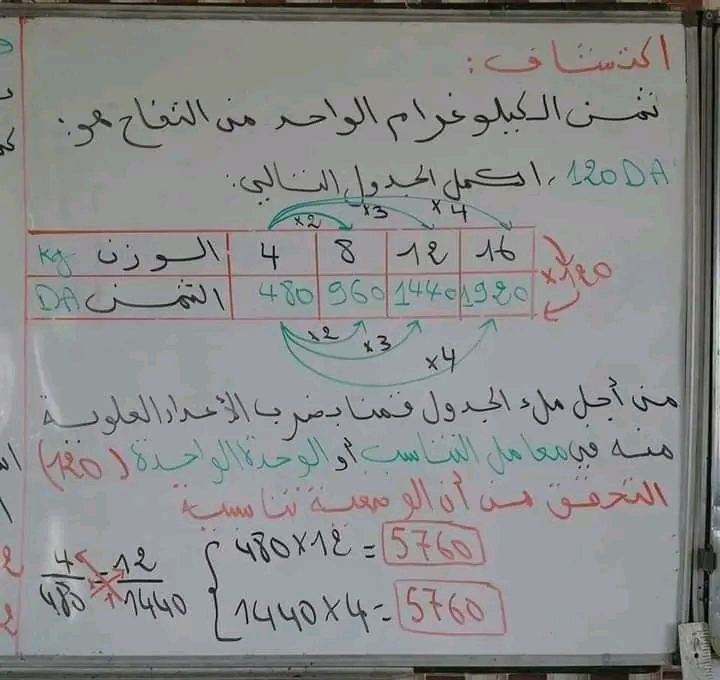 اكتشاف:
ثمن الكيلوغرام الواحد من التفاح هو:
120DA، استعمل الجدول التالي:
×2 ×3 ×4
الوزن kg 4 8 12 16
×120
الثمن DA 480 960 1440 1920
×2 ×3 ×4
من أجل ملء الجدول قمنا بضرب الأعداد العلوية
منه في معامل التناسب أو الوحدة الواحدة (120)
التحقق من أن الوضعية تناسبية
4/480 = 12/1440
480×12=5760
1440×4=5760